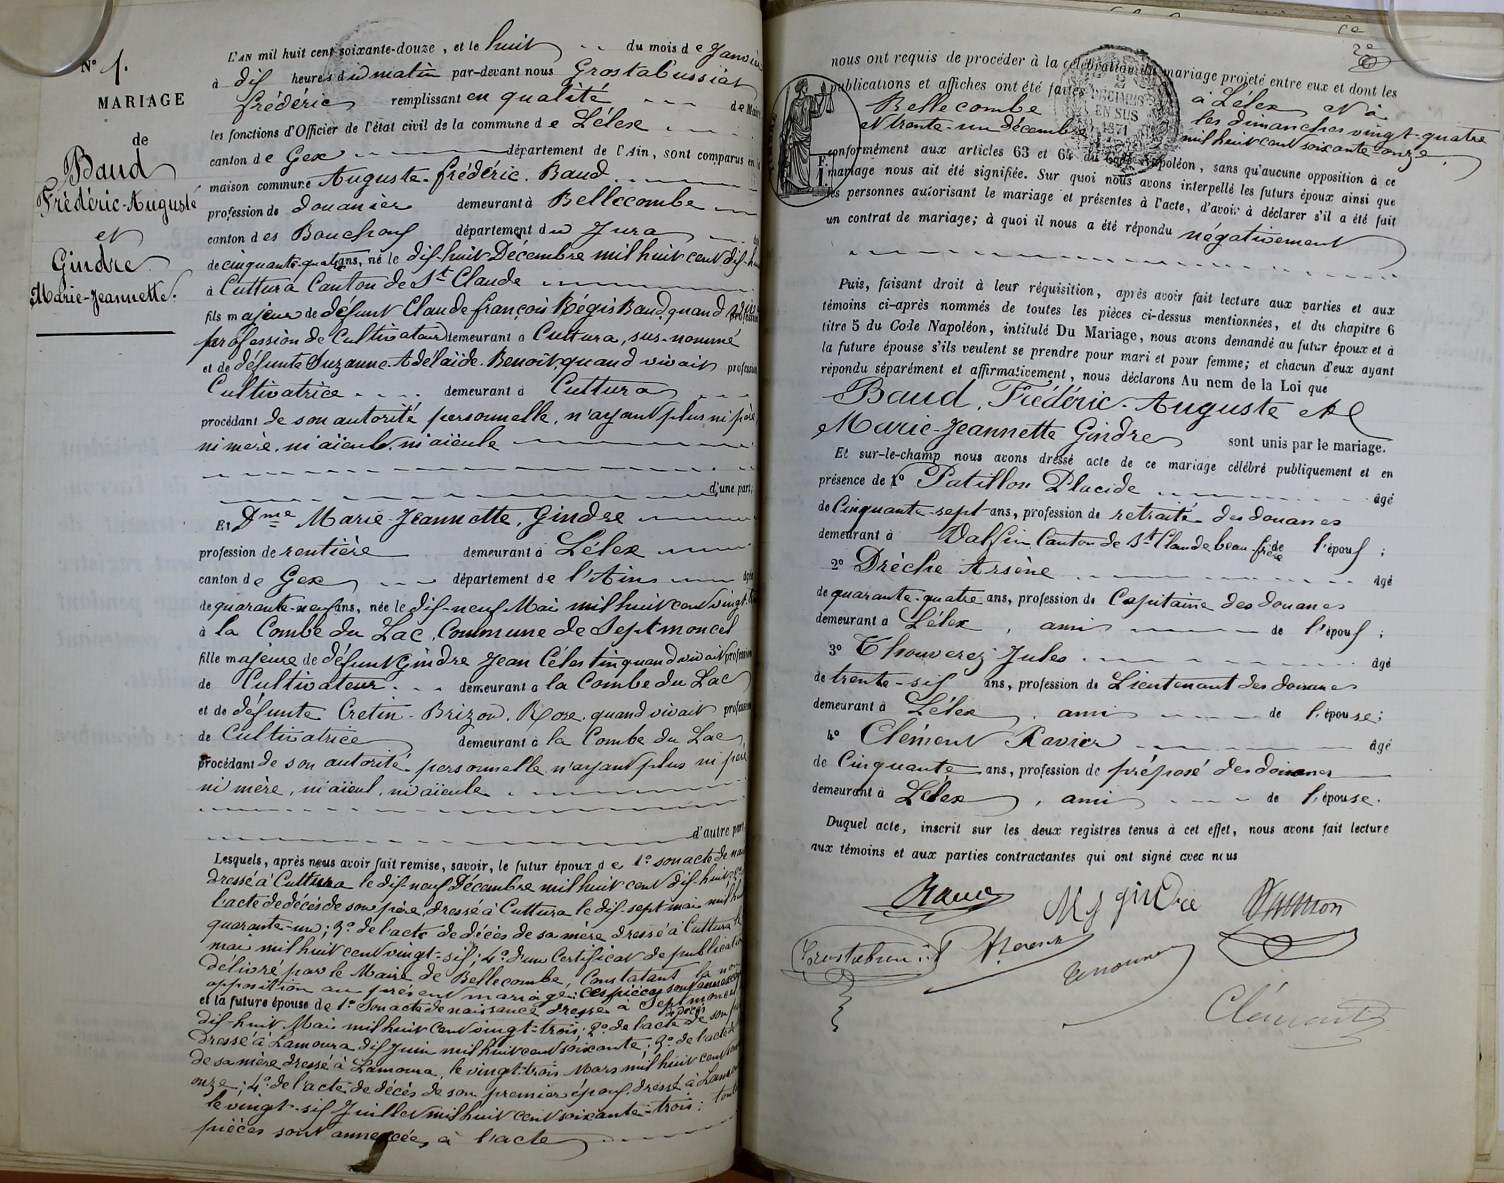 N° 1.
MARIAGE
de
Baud
Frédéric-Auguste
et
Gindre
Marie-Jeannette.
L'AN mil huit cent soixante-douze, et le huit du mois de Janvier
à dix heures du matin par-devant nous Grostabussiat
Frédéric remplissant en qualité de Maire
les fonctions d'Officier de l'état civil de la commune de Lélex
canton de Gex département de l'Ain, sont comparus en la
maison commune Auguste-Frédéric Baud
profession de douanier demeurant à Bellecombe
canton des Bouchoux département du Jura
de cinquante-quatre ans, né le dix-huit Décembre mil huit cent dix-huit
à Cuttura Canton de St Claude
fils majeur de défunt Claude françois Régis Baud, quand vivait
profession de Cultivateur demeurant à Cuttura, sus-nommé
et de défunte Suzanne Adélaïde Benoit, quand vivait profession
Cultivatrice demeurant à Cuttura
procédant de son autorité personnelle, n'ayant plus ni père
ni mère, ni aïeul, ni aïeule
d'une part,
Et Dme Marie-Jeannette, Gindre
profession de rentière demeurant à Lélex
canton de Gex département de l'Ain âgée
de quarante-neuf ans, née le dix-neuf Mai mil huit cent vingt-
à la Combe du Lac, Commune de Septmoncel
fille majeure de défunt Gindre Jean Célestin quand vivait profession
de Cultivateur demeurant à la Combe du Lac
et de défunte Cretin-Brizou, Rose, quand vivait profession
de Cultivatrice demeurant à la Combe du Lac
procédant de son autorité personnelle n'ayant plus ni père
ni mère, ni aïeul, ni aïeule
d'autre part
Lesquels, après nous avoir fait remise, savoir, le futur époux de 1° son acte de
dressé à Cuttura le dix-neuf Décembre mil huit cent dix-huit 2°
l'acte de décès de son père, dressé à Cuttura le dix-sept mai mil huit
quarante-un; 3° de l'acte de décès de sa mère dressé à Cuttura le
mai mil huit cent vingt-six; 4° d'un certificat de publication
délivré par le Maire de Bellecombe, Constatant la non
opposition au présent mariage; ces pièces sont annexées
et la future épouse de 1° Son acte de naissance dressé à Septmoncel
dix-huit Mai mil huit cent vingt-trois; 2° de l'acte de décès de son
dressé à Lamoura dix Juin mil huit cent soixante; 3° de l'acte de
de sa mère dressé à Lamoura, le vingt-trois Mars mil huit cent
onze; 4° de l'acte de décès de son premier époux dressé à
le vingt-six Juillet mil huit cent soixante-trois;
pièces sont annexées à l'acte
2e
nous ont requis de procéder à la célébration du mariage projeté entre eux et dont les
publications et affiches ont été faites à Lélex et à
Bellecombe les dimanches vingt-quatre
et trente-un décembre mil huit cent soixante-onze,
conformément aux articles 63 et 64 du Code Napoléon, sans qu'aucune opposition à ce
mariage nous ait été signifiée. Sur quoi nous avons interpellé les futurs époux ainsi que
les personnes autorisant le mariage et présentes à l'acte, d'avoir à déclarer s'il a été fait
un contrat de mariage; à quoi il nous a été répondu négativement
Puis, faisant droit à leur réquisition, après avoir fait lecture aux parties et aux
témoins ci-après nommés de toutes les pièces ci-dessus mentionnées, et du chapitre 6
titre 5 du Code Napoléon, intitulé Du Mariage, nous avons demandé au futur époux et à
la future épouse s'ils veulent se prendre pour mari et pour femme; et chacun d'eux ayant
répondu séparément et affirmativement, nous déclarons Au nom de la Loi que
Baud, Frédéric-Auguste et
Marie-Jeannette Gindre sont unis par le mariage.
Et sur-le-champ nous avons dressé acte de ce mariage célébré publiquement et en
présence de 1° Patillon Placide âgé
de Cinquante-sept ans, profession de retraité des douanes
demeurant à Valfin Canton de St Claude beau frère de l'époux;
2° Drèche Arsène âgé
de quarante-quatre ans, profession de Capitaine des douanes
demeurant à Lélex, ami de l'époux;
3° Thouverez Jules âgé
de trente-six ans, profession de Lieutenant des douanes
demeurant à Lélex, ami de l'épouse;
4° Clément Xavier âgé
de Cinquante ans, profession de préposé des douanes
demeurant à Lélex, ami de l'épouse.
Duquel acte, inscrit sur les deux registres tenus à cet effet, nous avons fait lecture
aux témoins et aux parties contractantes qui ont signé avec nous
Baud MJ Gindre
Clément